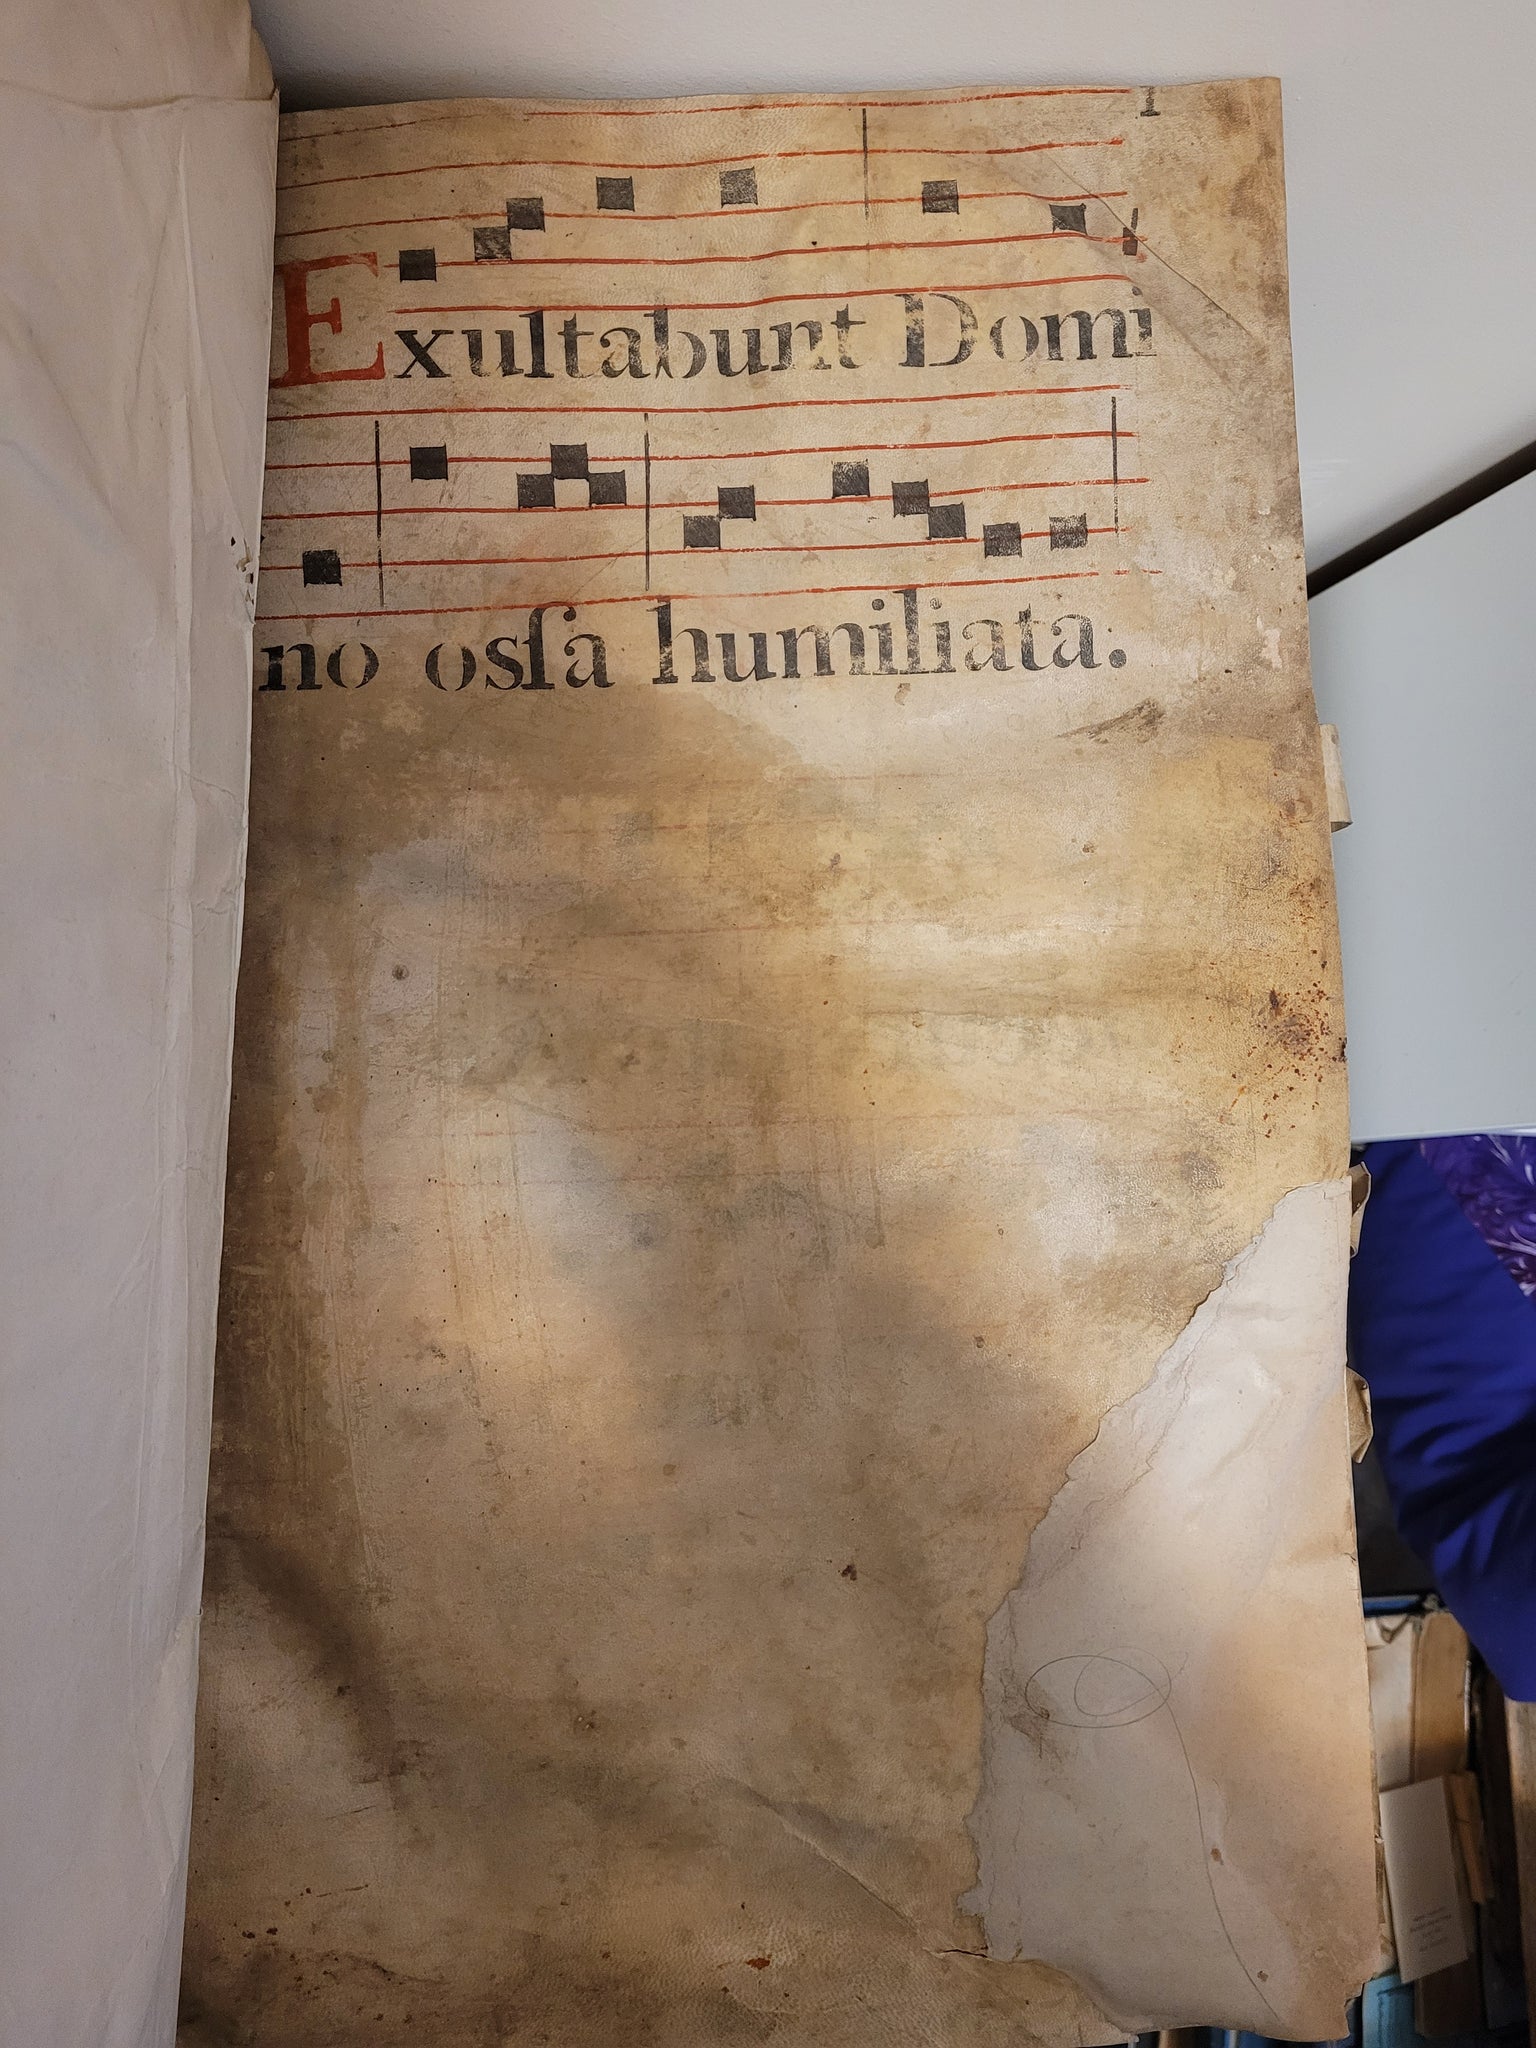 Exultabunt Domi
no osſa humiliata.